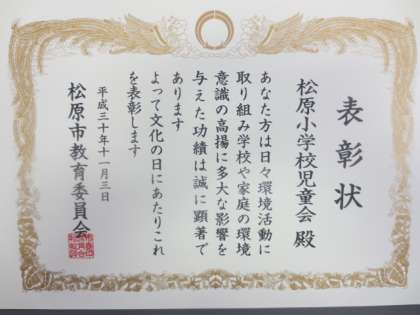 表彰状
松原小学校児童会 殿
あなた方は日々環境活動に
取り組み学校や家庭の環境
意識の高揚に多大な影響を
与えた功績は誠に顕著で
あります
よって文化の日にあたりこれ
を表彰します
平成三十年十一月三日
松原市教育委員会